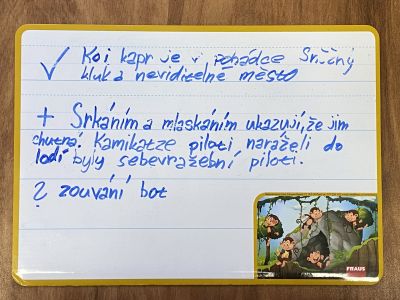 ✓ Koi kapr je v pohádce Sněčný
kluk a neviditelné město
+ Srkáním a mlaskáním ukazují, že jim
chutná! Kamikatze piloti naráželi do
lodí byly sebevražební piloti.
? zouvání bot
FRAUS